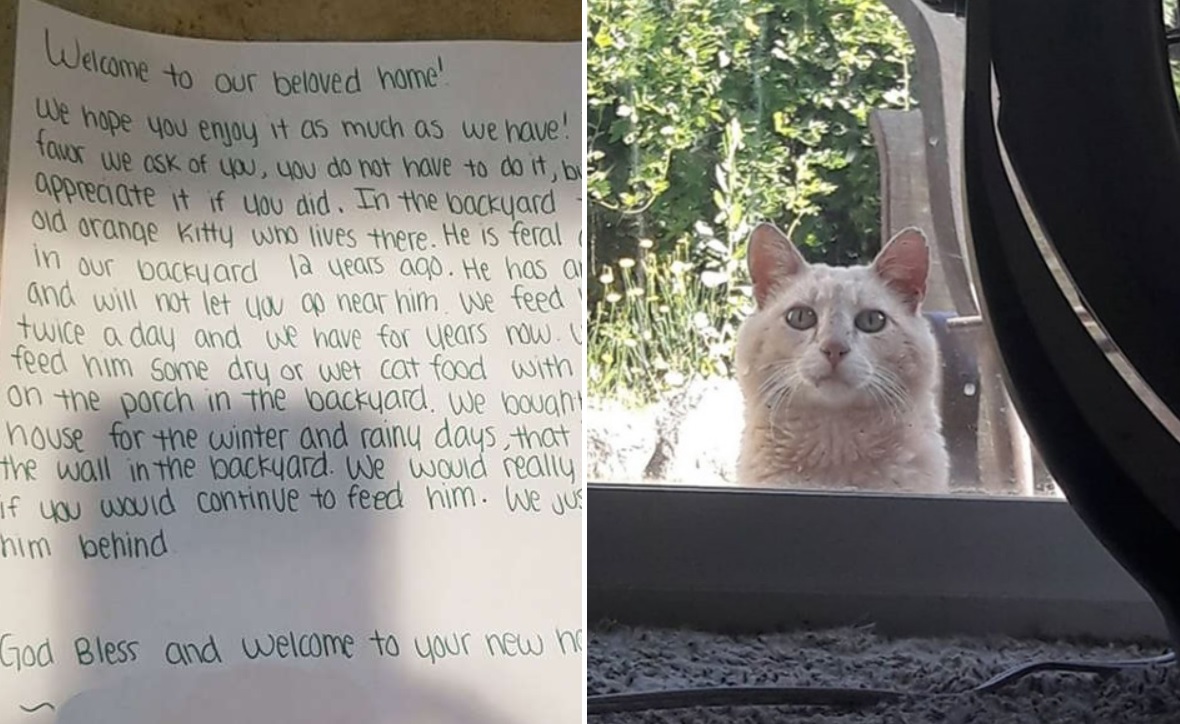 Welcome to our beloved home!
We hope you enjoy it as much as we have!
favor we ask of you, you do not have to do it,
appreciate it if you did. In the backyard
old orange Kitty who lives there. He is feral
in our backyard 12 years ago. He has
and will not let you go near him. We feed
twice a day and we have for years now.
feed him some dry or wet cat food with
on the porch in the backyard. We bought
house for the winter and rainy days, that
the wall in the backyard. We would really
if you would continue to feed him. We
him behind
God Bless and welcome to your new